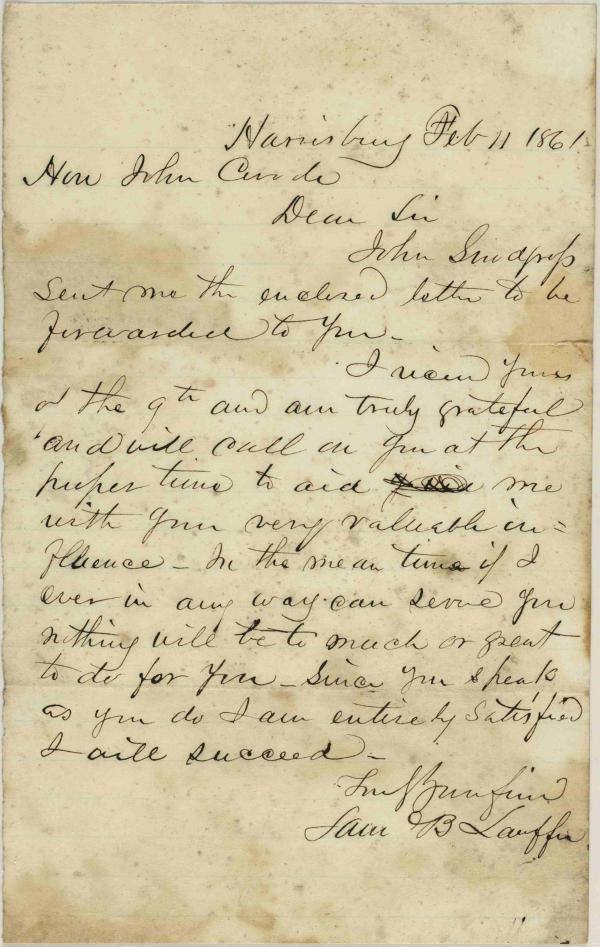 Harrisburg Feb 11 1861
Hon John Covode
Dear Sir
John Snodgrass
sent me the enclosed letter to be
forwarded to you –
I recievd yours
of the 9th and am truly grateful
and will call on you at the
proper time to aid me
with your very valuable in=
fluence – In the mean time if I
ever in any way can serve you
nothing will be to much or great
to do for you – Since you speak
as you do I am entirely satisfied
I will succeed –
Truly your friend
Sam B Lauffer